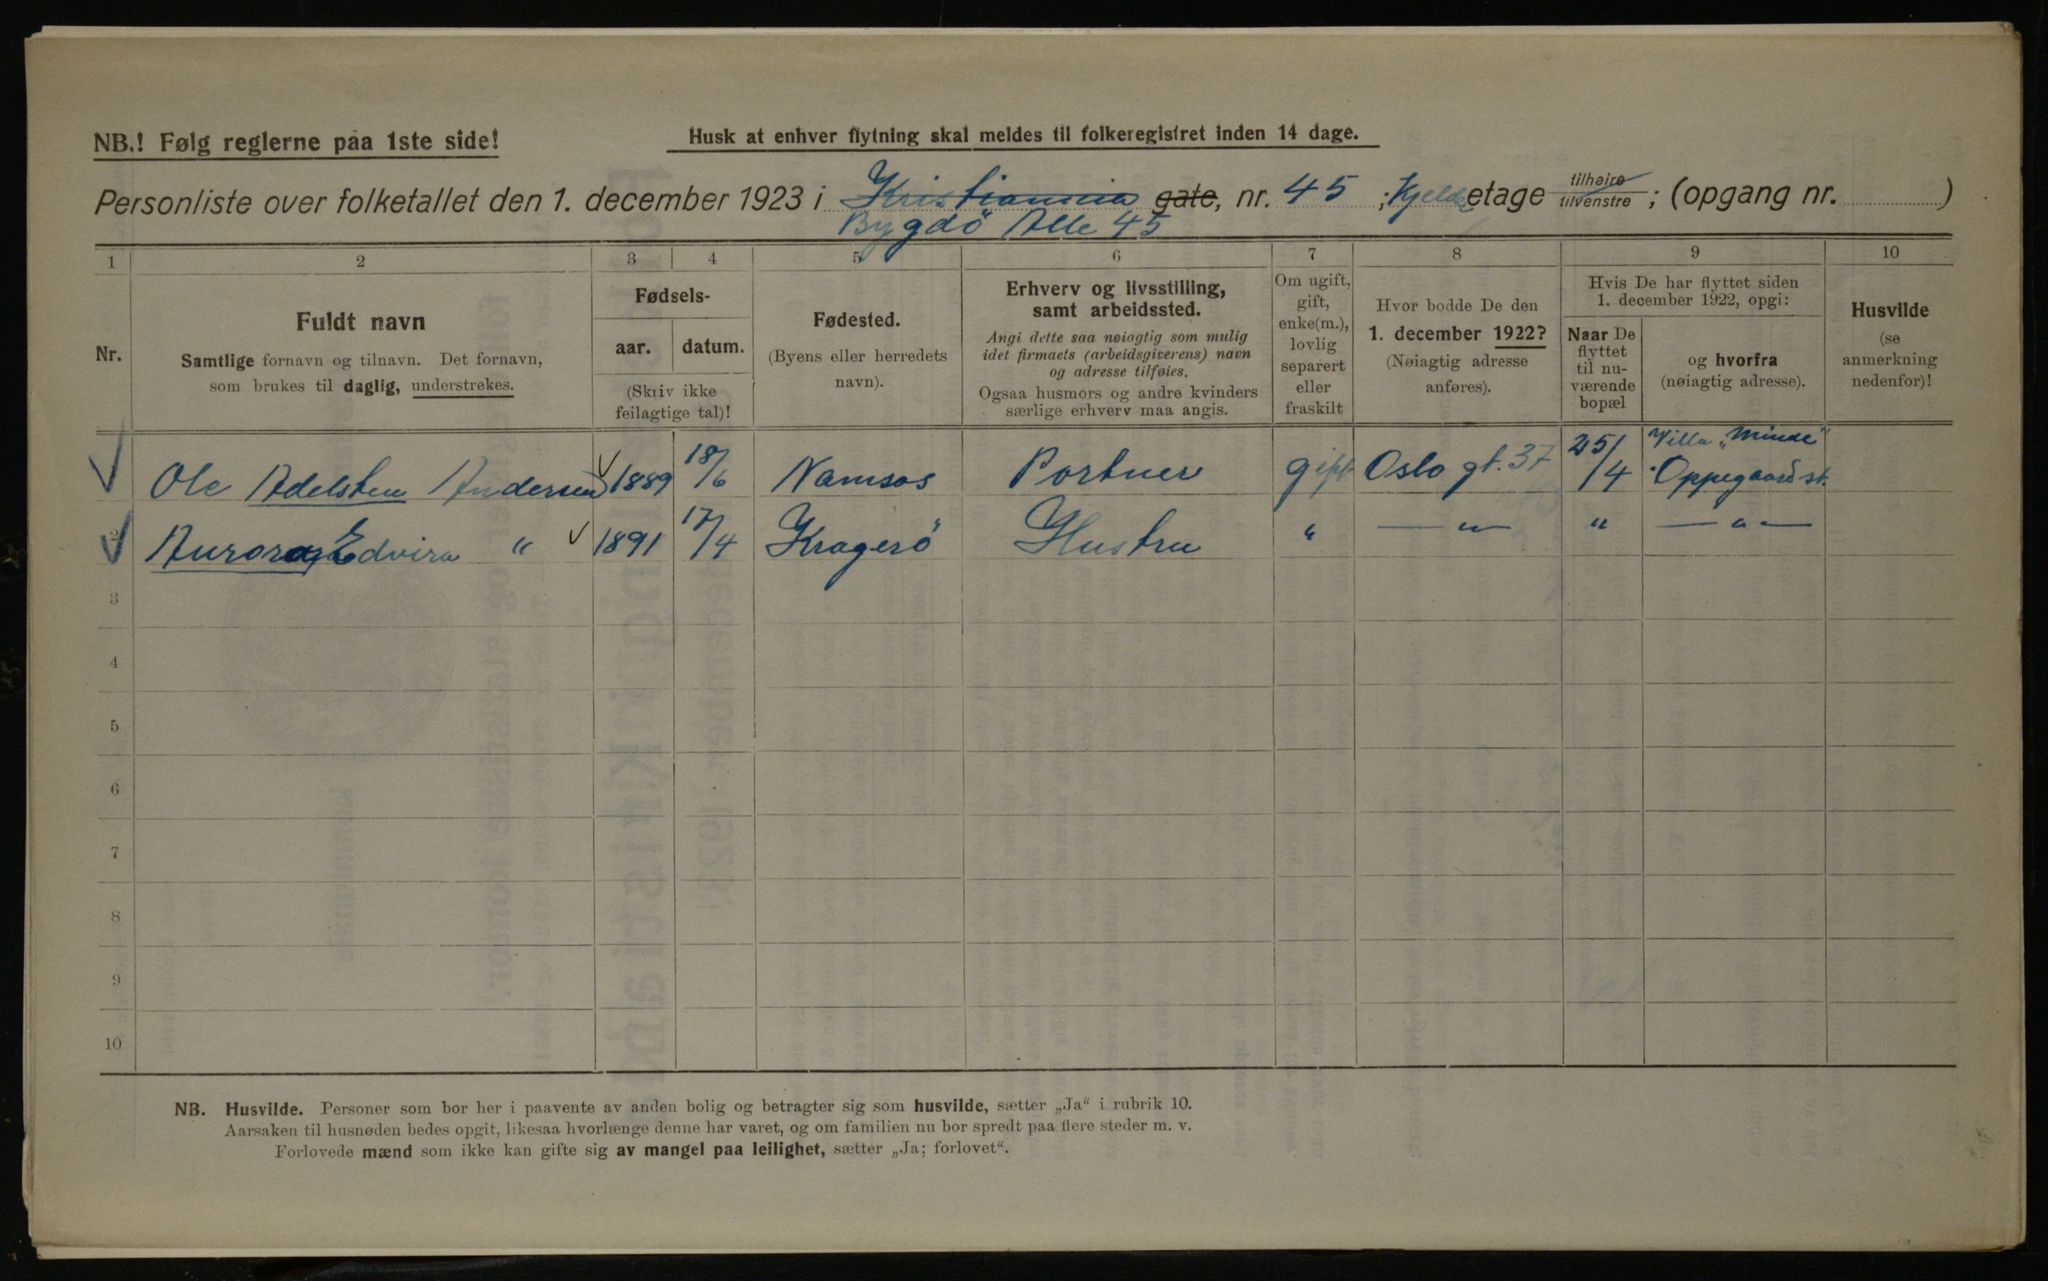 NB.! Følg reglerne paa 1ste side!
Husk at enhver flytning skal meldes til folkeregistret inden 14 dage.
Personliste over folketallet den 1. december 1923 i Kristiania gate, nr. 45 ; Kjelder etage tilhøire tilvenstre ; (opgang nr. )
Bygdö Alle 45
1 2 3 4 5 6 7 8 9 10
Nr.
Fuldt navn
Samtlige fornavn og tilnavn. Det fornavn,
som brukes til daglig, understrekes.
Fødsels-
aar. datum.
(Skriv ikke
feilagtige tal)!
Fødested.
(Byens eller herredets
navn).
Erhverv og livsstilling,
samt arbeidssted.
Angi dette saa nøiagtig som mulig
idet firmaets (arbeidsgiverens) navn
og adresse tilføies.
Ogsaa husmors og andre kvinders
særlige erhverv maa angis.
Om ugift,
gift,
enke(m.),
lovlig
separert
eller
fraskilt
Hvor bodde De den
1. december 1922?
(Nøiagtig adresse
anføres).
Hvis De har flyttet siden
1. december 1922, opgi:
Naar De
flyttet
til nu-
værende
bopæl
og hvorfra
(nøiagtig adresse).
Husvilde
(se
anmerkning
nedenfor)!
Ole Adelsten Andersen 1889 18/6 Namsos Portner gift Oslo gt. 37 25/4 Villa „Minde“
Oppegaard st.
2 Aurora Edvira " 1891 17/4 Kragerö Hustru " — " — " — " —
3
4
5
6
7
8
9
10
NB. Husvilde. Personer som bor her i paavente av anden bolig og betragter sig som husvilde, sætter „Ja“ i rubrik 10.
Aarsaken til husnøden bedes opgit, likesaa hvorlænge denne har varet, og om familien nu bor spredt paa flere steder m. v.
Forlovede mænd som ikke kan gifte sig av mangel paa leilighet, sætter „Ja; forlovet“.